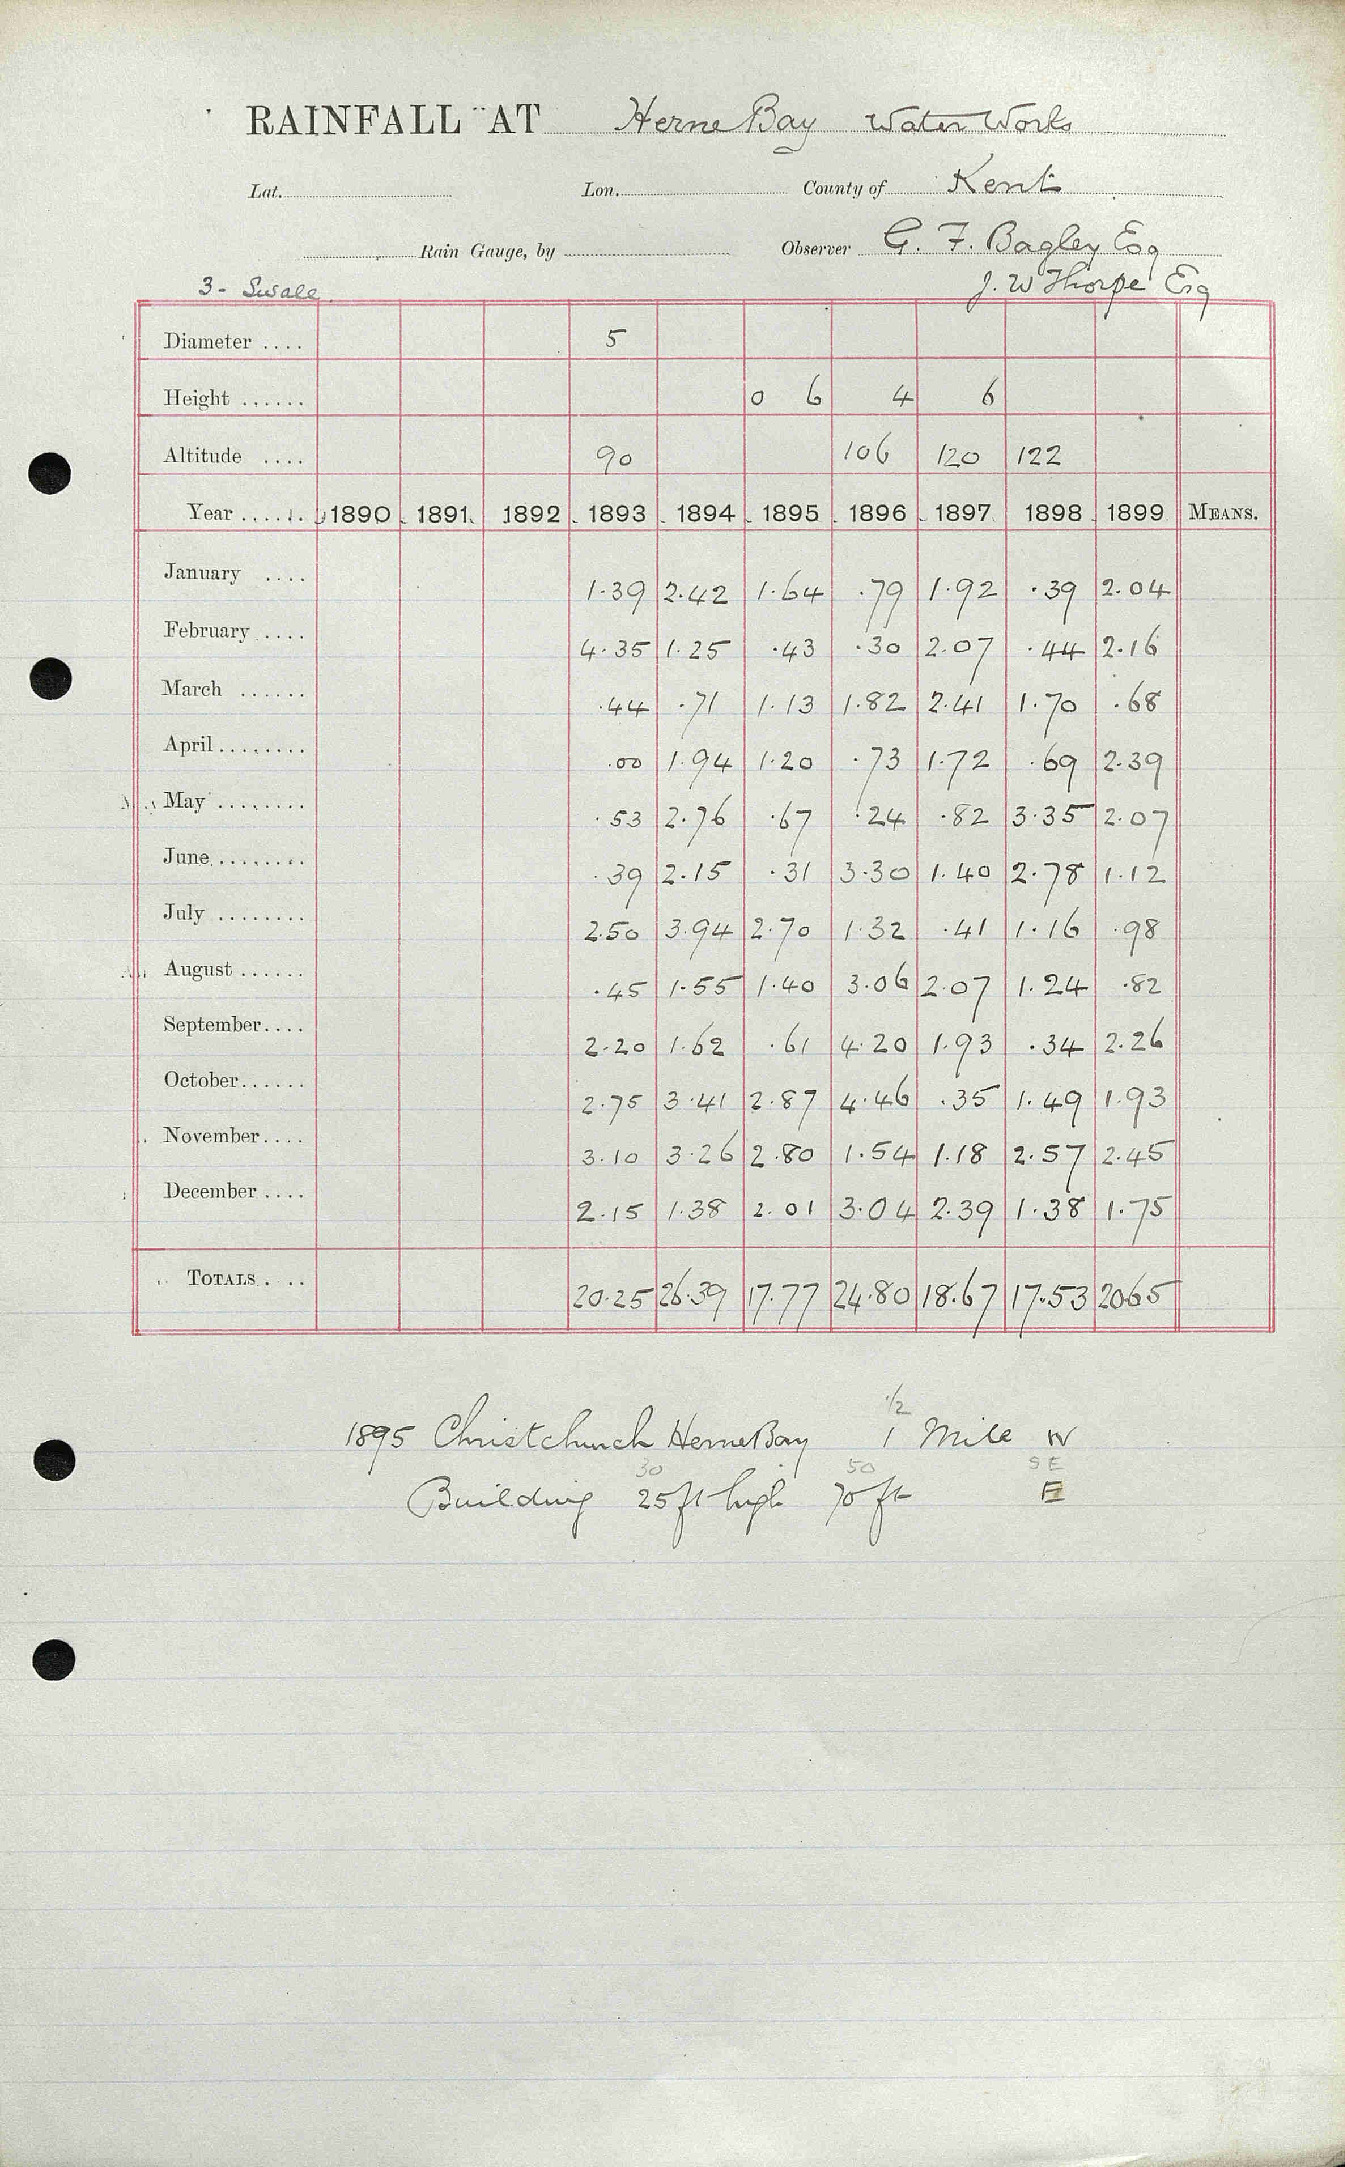 RAINFALL AT Herne Bay Water Works
Lat. Lon. County of Kent
Rain Gauge, by Observer G. F. Bagley Esq
3 - Swale J. W Thorpe Esq
Diameter .... 5
Height ...... 0 6 4 6
Altitude .... 90 106 120 122
Year ...... 1890 1891 1892 1893 1894 1895 1896 1897 1898 1899 MEANS.
January .... 1.39 2.42 1.64 .79 1.92 .39 2.04
February .... 4.35 1.25 .43 .30 2.07 .44 2.16
March ...... .44 .71 1.13 1.82 2.41 1.70 .68
April ........ .00 1.94 1.20 .73 1.72 .69 2.39
May ........ .53 2.76 .67 .24 .82 3.35 2.07
June ........ .39 2.15 .31 3.30 1.40 2.78 1.12
July ........ 2.50 3.94 2.70 1.32 .41 1.16 .98
August ...... .45 1.55 1.40 3.06 2.07 1.24 .82
September .... 2.20 1.62 .61 4.20 1.93 .34 2.26
October ...... 2.75 3.41 2.87 4.46 .35 1.49 1.93
November .... 3.10 3.26 2.80 1.54 1.18 2.57 2.45
December .... 2.15 1.38 2.01 3.04 2.39 1.38 1.75
TOTALS .... 20.25 26.39 17.77 24.80 18.67 17.53 20.65
1/2
1895 Christchurch Herne Bay 1 Mile W
30 50 SE
Building 25 ft high 70 ft E